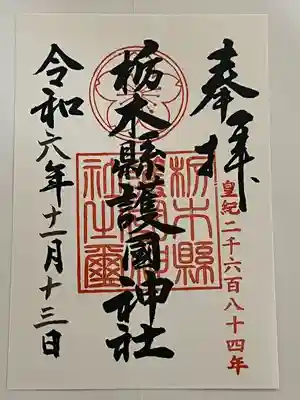 奉拝
皇紀二千六百八十四年
栃木縣護國神社
栃木縣護國神社之璽
令和六年十一月十三日